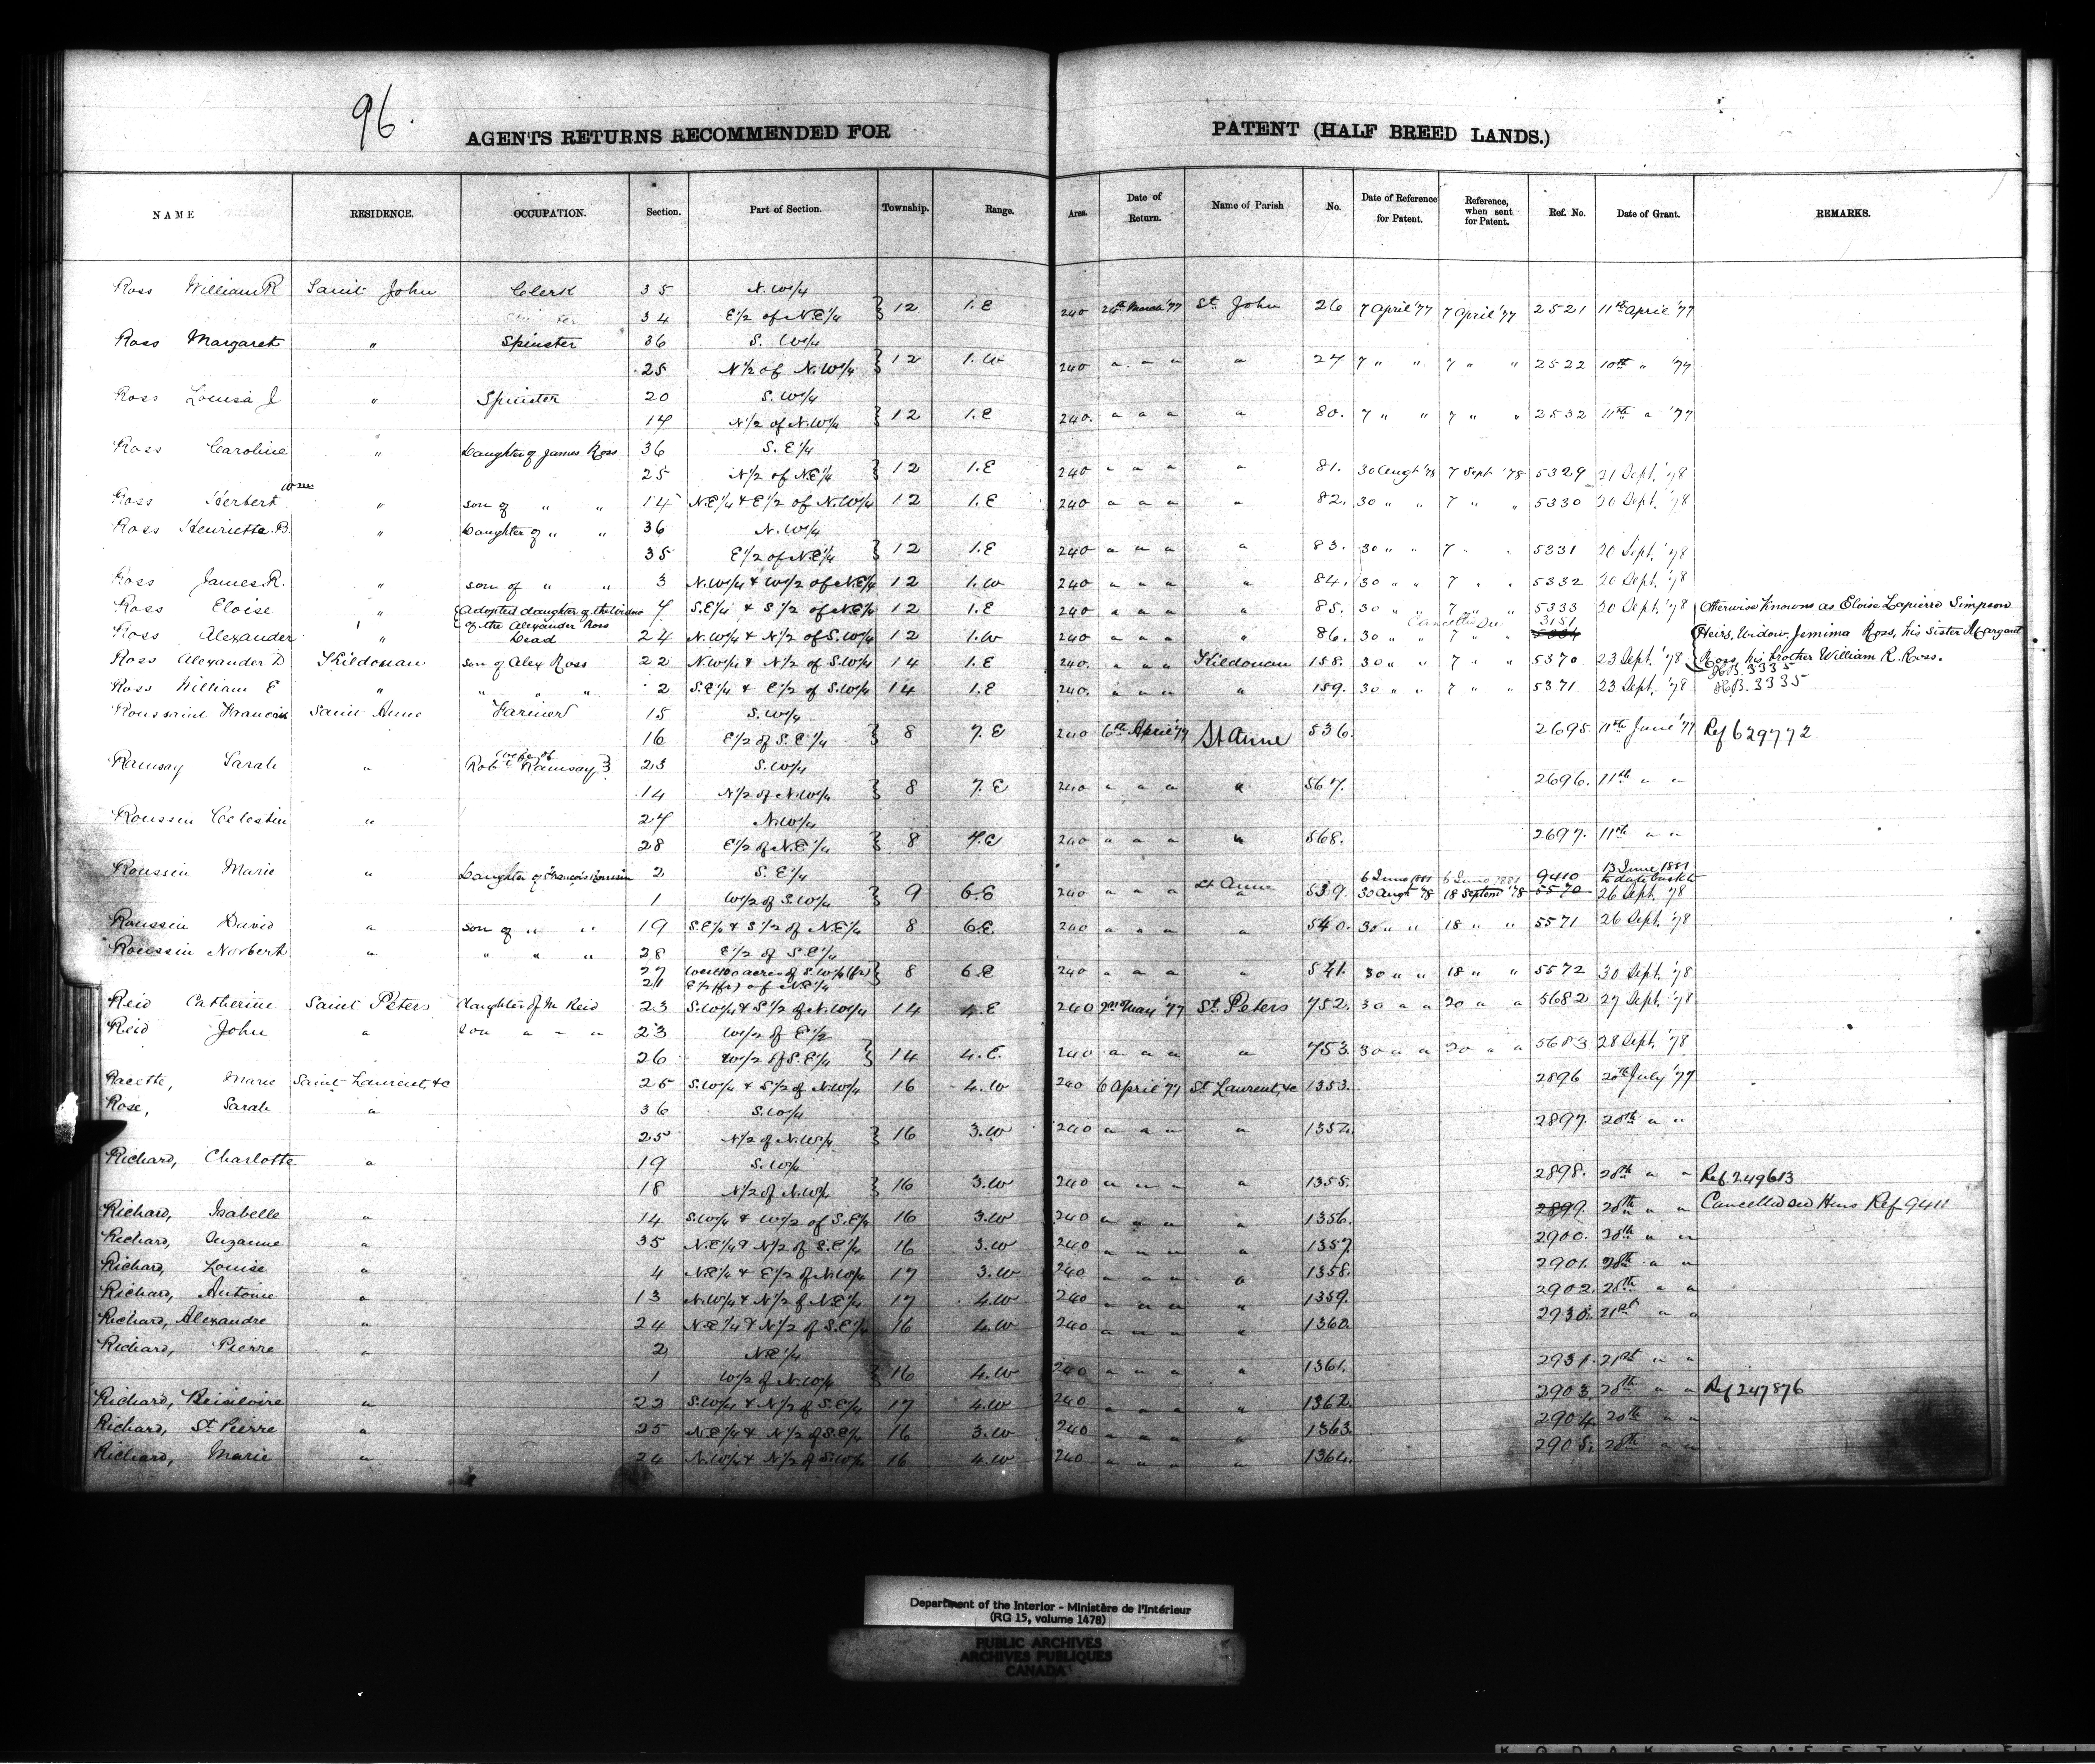 96.
AGENTS RETURNS RECOMMENDED FOR PATENT (HALF BREED LANDS.)
NAME RESIDENCE. OCCUPATION. Section. Part of Section. Township. Range. Area. Date of Return. Name of Parish No. Date of Reference for Patent. Reference, when sent for Patent. Ref. No. Date of Grant. REMARKS.
Ross William R Saint John Clerk 35 N.W1/4
34 E1/2 of N.E1/4 } 12 1.E 240 24th March '77 St. John 26 7 April '77 7 April '77 2521 11th April '77
Ross Margaret " Spinster 36 S.W1/4
25 N1/2 of N.W1/4 } 12 1.W 240 " " " " 27 7 " " 7 " " 2522 10th " '77
Ross Louisa J " Spinster 20 S.W1/4
14 N1/2 of N.W1/4 } 12 1.E 240. " " " " 80. 7 " " 7 " " 2532 11th " '77
Ross Caroline " Daughter of James Ross 36 S.E1/4
25 N1/2 of N.E1/4 } 12 1.E 240 " " " " 81. 30 Augt '78 7 Sept '78 5329 21 Sept. '78
Ross Herbert Wm " son of " " 14 N.E1/4 & E1/2 of N.W1/4 12 1.E 240 " " " " 82. 30 " " 7 " " 5330 20 Sept. '78
Ross Henrietta B. " Daughter of " " 36 N.W1/4
35 E1/2 of N.E1/4 } 12 1.E 240 " " " " 83. 30 " " 7 " " 5331 20 Sept. '78
Ross James R. " son of " " 3 N.W1/4 & W1/2 of N.E1/4 12 1.W 240 " " " " 84. 30 " " 7 " " 5332 20 Sept. '78
Ross Eloise " {Adopted daughter of the Widow of the Alexander Ross 7 S.E1/4 & S1/2 of N.E1/4 12 1.E 240 " " " " 85. 30 " " 7 " " 5333 20 Sept. '78 Otherwise known as Eloise Lapierre Simpson
Ross Alexander " Dead 24 N.W1/4 & N1/2 of S.W1/4 12 1.W 240 " " " " 86. 30 " " Cancelled See 7 " " 3151 {Heirs, Widow Jemima Ross, his Sister Margaret
Ross Alexander D Kildonan son of Alex Ross 22 N.W1/4 & N1/2 of S.W1/4 14 1.E 240. " " " Kildonan 158. 30 " " 7 " " 5370 23 Sept. '78 Ross, his brother William R. Ross. H.B. 3335
Ross William E " " " " 2 S.E1/4 & E1/2 of S.W1/4 14 1.E 240. " " " " 159. 30 " " 7 " " 5371 23 Sept. '78 H.B. 3335
Roussaint Francois Saint Anne Farmer 15 S.W1/4
16 E1/2 of S.E1/4 } 8 7.E 240 6th April '77 St Anne 536. 2695. 11th June '77 Ref 629772
Ramsay Sarah " wife of Robt Ramsay} 23 S.W1/4
14 N1/2 of N.W1/4 } 8 7.E 240 " " " " 567. 2696. 11th " "
Roussin Celestin " 27 N.W1/4
28 E1/2 of N.E1/4 } 8 7.E 240 " " " " 568. 2697. 11th " "
Roussin Marie " Daughter of Francois Roussin 2 S.E1/4 6 June 1881 6 June 1881 9410 13 June 1881 to date back to
1 W1/2 of S.W1/4 } 9 6.E 240 " " " St Anne 539. 30 Augt '78 18 Septem '78 5570 26 Sept. '78
Roussin David " son of " " 19 S.E1/4 & S1/2 of N.E1/4 8 6.E 240 " " " " 540. 30 " " 18 " " 5571 26 Sept. '78
Roussin Norbert " " " " 28 E1/2 of S.E1/4
27 West 100 acres of S.W1/4 (fr) } 8 6.E 240 " " " " 541. 30 " " 18 " " 5572 30 Sept. '78
21 E1/2 (fr) of N.E1/4
Reid Catherine Saint Peters daughter of Reid 23 S.W1/4 & S1/2 of N.W1/4 14 4.E 240 2nd May '77 St. Peters 752. 30 " " 20 " " 5682 27 Sept. '78
Reid John " son " " " 23 W1/2 of E1/2
26 W1/2 of S.E1/4 } 14 4.E. 240 " " " " 753. 30 " " 20 " " 5683 28 Sept. '78
Racette, Marie Saint Laurent, &c 25 S.W1/4 & S1/2 of N.W1/4 16 4.W 240 6 April '77 St Laurent, &c 1353. 2896 20th July '77
Rose, Sarah " 36 S.W1/4
25 N1/2 of N.W1/4 } 16 3.W 240 " " " " 1354. 2897. 20th " "
Richard, Charlotte " 19 S.W1/4
18 N1/2 of N.W1/4 } 16 3.W 240 " " " " 1355. 2898. 20th " " Ref. 249613
Richard, Isabelle " 14 S.W1/4 & W1/2 of S.E1/4 16 3.W 240 " " " " 1356. 2899. 20th " " Cancelled See Heirs Ref 9411
Richard, Suzanne " 35 N.E1/4 & N1/2 of S.E1/4 16 3.W 240 " " " " 1357. 2900. 20th " "
Richard, Louise " 4 N.E1/4 & E1/2 of N.W1/4 17 3.W 240 " " " " 1358. 2901. 20th " "
Richard, Antoine " 13 N.W1/4 & N1/2 of N.E1/4 17 4.W 240 " " " " 1359. 2902. 20th " "
Richard, Alexandre " 24 N.E1/4 & N1/2 of S.E1/4 16 4.W 240 " " " " 1360. 2930. 21st " "
Richard, Pierre " 2 N.E1/4
1 W1/2 of N.W1/4 } 16 4.W 240 " " " " 1361. 2931. 21st " "
Richard, " 22 S.W1/4 & N1/2 of S.E1/4 17 4.W 240 " " " " 1362. 2903. 20th " " Ref 247876
Richard, St. Pierre " 25 N.E1/4 & N1/2 of S.E1/4 16 3.W 240 " " " " 1363. 2904. 20th " "
Richard, Marie " 24 N.W1/4 & N1/2 of S.W1/4 16 4.W 240 " " " " 1364. 2905. 20th " "
Department of the Interior - Ministère de l'Intérieur
(RG 15, volume 1478)
PUBLIC ARCHIVES
ARCHIVES PUBLIQUES
CANADA
KODAK SAFETY